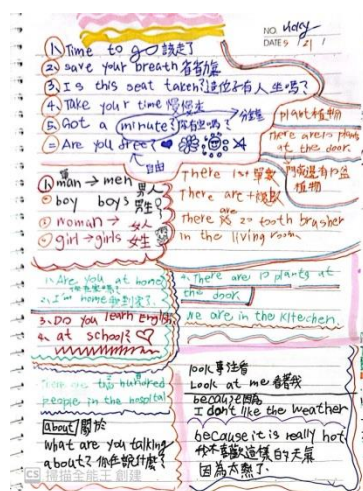 NO. vicky
DATE 5 / 2 / 1
1. Time to go 該走了
2. save your breath 省省力氣
3. Is this seat taken? 這位子有人坐嗎?
4. Take your time 慢慢來
5. Got a minute? 你有空嗎?
分鐘
= Are you free?
自由
plant 植物
There are 10 plants
at the door.
門旁邊有10盆
植物
1. man → men 男人
boy boys 男生
woman → 女人
girl → girls 女生
There is + 單數
There are + 複數
There are 20 tooth brusher
in the living room.
1. Are you at home
2. I'm home 我到家了.
3. Do you learn English
4. at school?
4. There are 10 plants at
the door.
We are in the kitechen.
hundred
people in the hospital
about 關於
what are you talking
about? 你在說什麼?
look 專注看
Look at me 看著我
because 因為
I don't like the weather
because it is really hot
我不喜歡這樣的天氣
因為太熱了.
CS 掃描全能王 創建